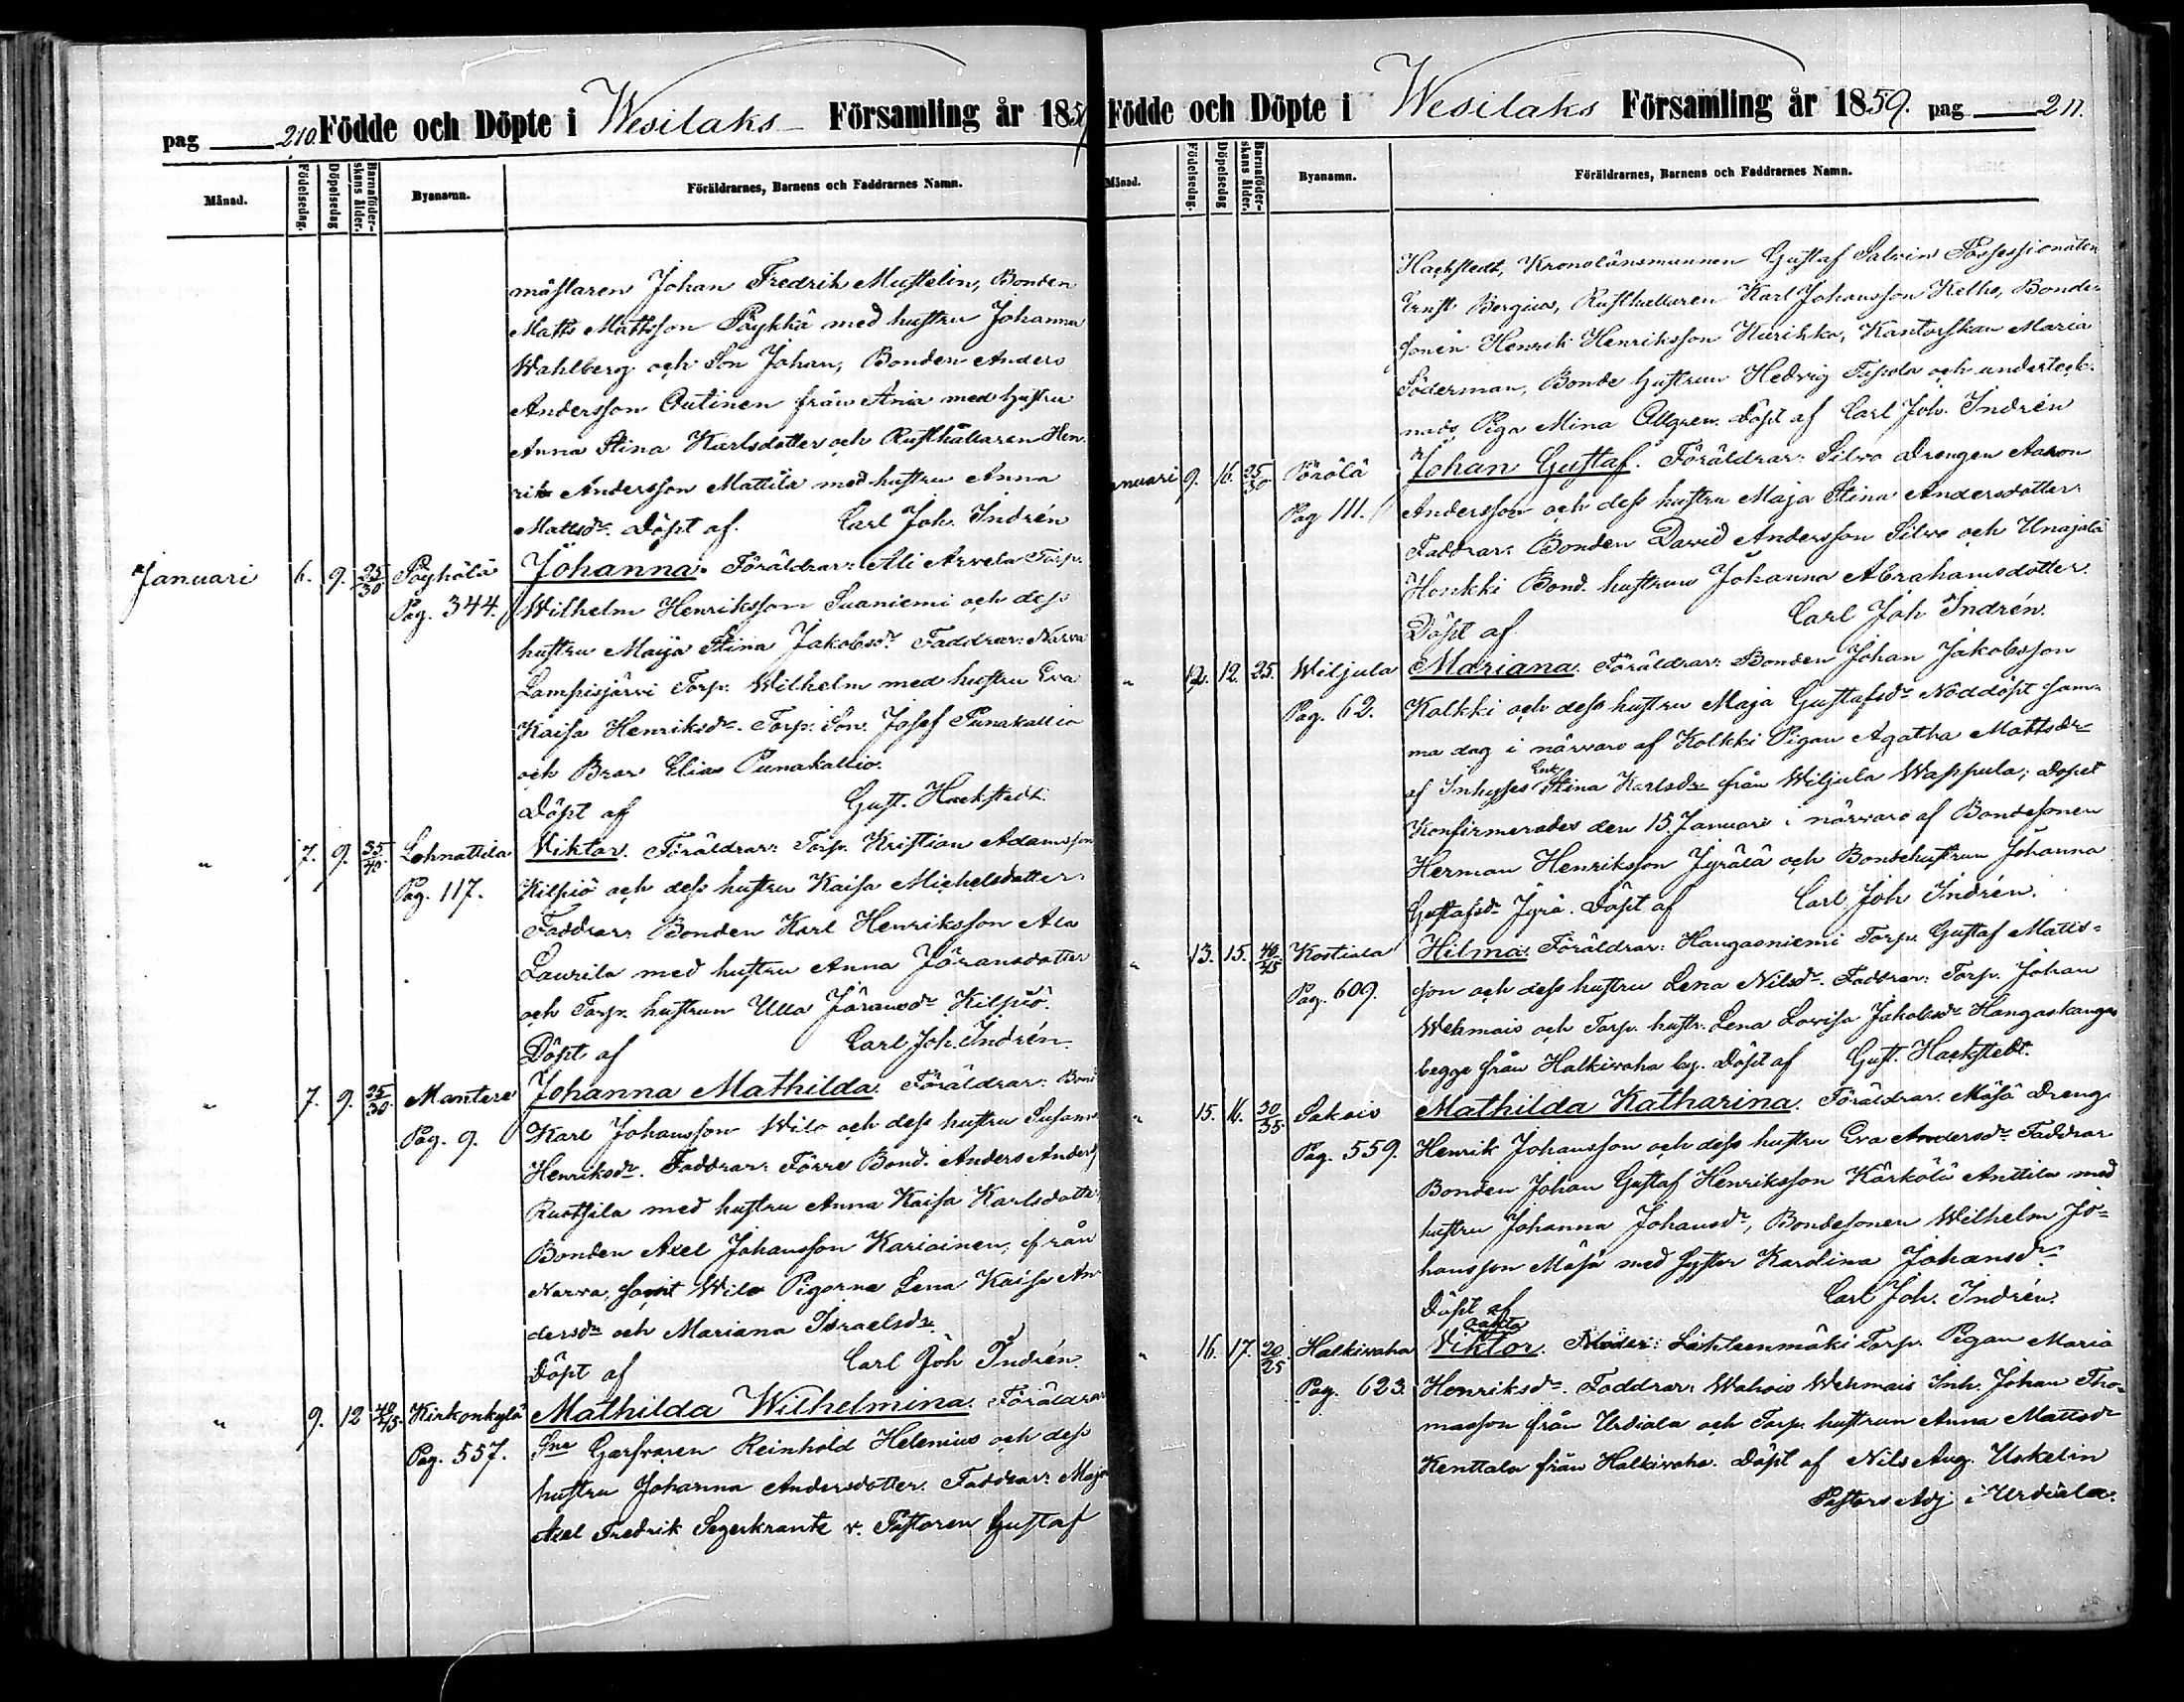 pag 210. Födde och Döpte i Wesilaks Församling år 1859
Månad.
Födelsedag.
Döpelsedag
Barnaföderskans ålder.
Byanamn.
Föräldrarnes, Barnens och Faddrarnes Namn.
mästaren Johan Fredrik Mustelin, Bonden
Matts Mattsson Päykkä med hustru Johanna
Wahlberg och Son Johan, Bonden Anders
Andersson Outinen från Ania med hustru
Anna Stina Karlsdotter och Rusthållaren Hen
rik Andersson Mattila med hustru Anna
Mattsdr. Döpt af Carl Joh. Indrén
Januari 6. 9. 25/30 Pöyhölä Johanna. Föräldrar: Ali Arvela Torp.
Pag. 344. Wilhelm Henriksson Suaniemi och dess
hustru Maija Stina Jakobsdr. Faddrar: Narva
Lampisjärvi Torp. Wilhelm med hustru Eva
Kaisa Henriksdr. Torp. Son. Josef Punakallio
och Bror Elias Punakallio.
Döpt af Gust. Hackstedt.
" 7. 9. 35/40. Lohnattila Viktor. Föräldrar: Torp. Kristian Adamsson
Pag. 117. Kilpiö och dess hustru Kaisa Michelsdotter.
Faddrar: Bonden Karl Henriksson Ala
Laurila med hustru Anna Göransdotter
och Torp. hustrun Ulla Göransdr Kilpiö.
Döpt af Carl Joh. Indrén.
" 7. 9. 25/30. Mantere Johanna Mathilda. Föräldrar: Bond
Pag. 9. Karl Johansson Wilo och dess hustru Susanna
Henriksdr. Faddrar: Förre Bond. Anders Anders
Ruotsila med hustru Anna Kaisa Karlsdotter
Bonden Axel Johansson Kariainen, från
Narva, samt Wilo Pigorna Lena Kaisa An
dersdr och Mariana Israelsdr.
Döpt af Carl Joh Indrén.
" 9. 12 40/45. Kirkonkylä Mathilda Wilhelmina. Föräldrar
Pag. 557. Sne Garfvaren Reinhold Helenius och dess
hustru Johanna Andersdotter. Faddrar: Majo
Axel Fredrik Segerkrantz v. Pastoren Gustaf
Födde och Döpte i Wesilaks Församling år 1859. pag 211.
Månad.
Födelsedag.
Döpelsedag
Barnaföderskans ålder.
Byanamn.
Föräldrarnes, Barnens och Faddrarnes Namn.
Hackstedt, Kronolänsmannen Gustaf Salvin Possessionaten
Ernst Bergius, Rusthållaren Karl Johansson Kelho, Bonde-
sonen Henrik Henriksson Kurikka, Kantorskan Maria
Söderman, Bonde hustrun Hedvig Tupola och underteck-
nads Piga Mina Allgren. Döpt af Carl Joh. Indrén
anuari 9. 16. 25/30 Pörölä Johan Gustaf. Föräldrar: Silvo Drengen Aaron
Pag 111. Andersson och dess hustru Maja Stina Andersdotter.
Faddrar: Bonden David Andersson Silvo och Unajala
Honkki Bond. hustrun Johanna Abrahamsdotter.
Döpt af Carl Joh Indrén.
" 12. 12. 25. Wiljula Mariana. Föräldrar: Bonden Johan Jakobsson
Pag. 62. Kolkki och dess hustru Maja Gustafsdr. Nöddöpt sam-
ma dag i närvaro af Kolkki Pigan Agatha Mattsdr
af Inhyses Enk. Stina Karlsdr från Wiljula Wappula; dopet
Konfirmerades den 15. Januari i närvaro af Bondesonen
Herman Henriksson Jyrälä och Bondehustrun Johanna
Gustafsdr Jyrä. Döpt af Carl Joh Indrén.
" 13. 15. 40/45 Kostiala Hilma. Föräldrar: Hangasniemi Torp. Gustaf Matts-
Pag. 609. son och dess hustru Lena Nilsdr. Faddrar: Torp. Johan
Wehmais och Torp. hustr. Lena Lovisa Jakobsdr Hangaskangas
begge från Halkivaha by. Döpt af Gust. Hackstedt.
" 15. 16. 30/35 Sakois Mathilda Katharina. Föräldrar. Mäsä Dreng.
Pag. 559. Henrik Johansson och dess hustru Eva Andersdr. Faddrar
Bonden Johan Gustaf Henriksson Kärkölä Anttila med
hustru Johanna Johansdr, Bondesonen Wilhelm Jo-
hansson Mäsä med Syster Karolina Johansdr.
Döpt af Carl Joh. Indrén.
oäkta
" 16. 17. 20/25 Halkivaha Viktor. Moder: Lähteenmäki Torp. Pigan Maria
Pag. 623. Henriksdr. Faddrar: Wahois Wehmais Inh. Johan Tho-
masson från Urdiala och Torp. hustrun Anna Mattsdr
Kenttala från Halkivaha. Döpt af Nils Aug. Uskelin
Pastors Adj i Urdiala.